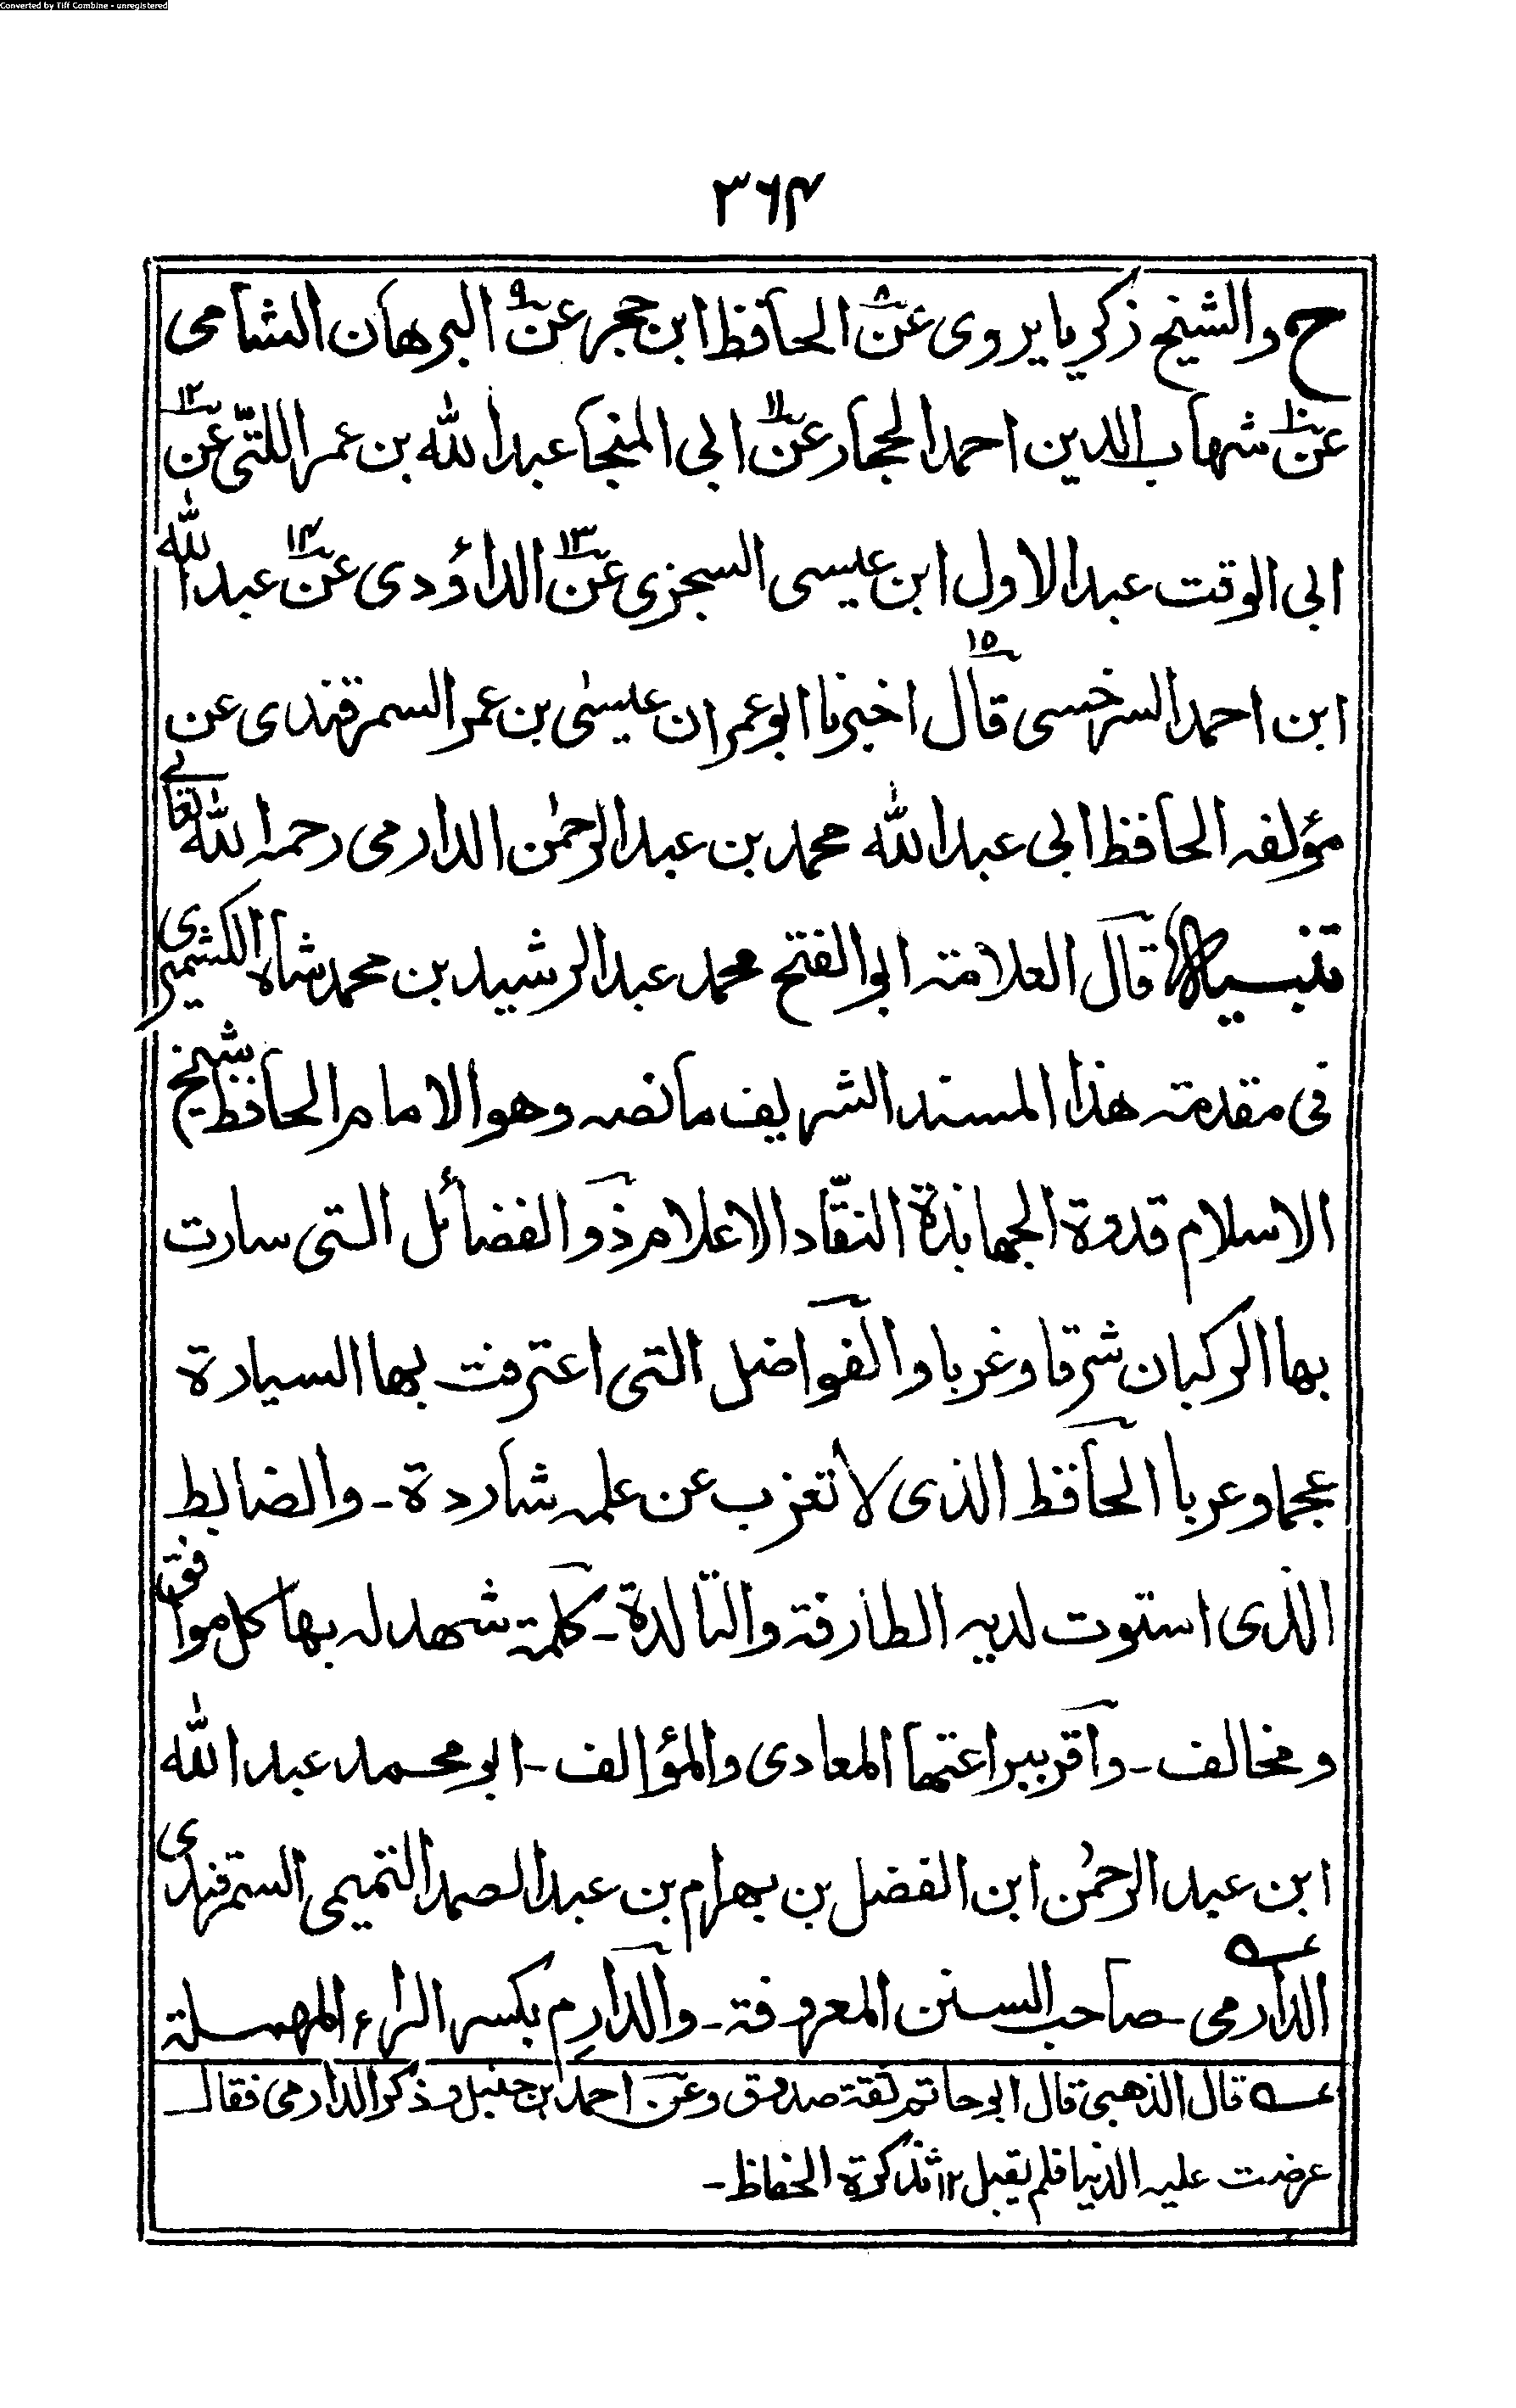 Converted by Tiff Combine - unregistered
۳۶۴
ح والشيخ زكريا يروى عن ۸ الحافظ ابن حجر عن ۹ البرهان الشامى
عن ۱۰ شهاب الدين احمد الحجار عن ۱۱ ابى المنجا عبد الله بن عمر اللتّى عن ۱۲
ابى الوقت عبد الاول ابن عيسى السجزى عن ۱۳ الداؤدى عن ۱۴ عبد الله
ابن احمد السرخسى قال ۱۵ اخبرنا ابو عمران عيسىٰ بن عمر السمرقندى عن
مؤلفه الحافظ ابى عبد الله محمد بن عبد الرحمٰن الدارمى رحمه الله تعالے
تنبيه قال العلامة ابو الفتح محمد عبد الرشيد بن محمد شاه الكشميرى
فى مقدمة هذا المسند الشريف ما نصه وهو الامام الحافظ شيخ
الاسلام قدوة الجهابذة النقّاد الاعلام ذو الفضائل التى سارت
بها الركبان شرقا وغربا والفواضل التى اعترفت بها السيارة
عجما وعربا الحافظ الذى لا تعزب عن علمه شاردة - والضابط
الذى استوت لديه الطارفة والتالدة - كلمة شهد له بها كل موافق
ومخالف - واقر ببراعتها المعادى والمؤالف - ابو محمد عبد الله
ابن عبد الرحمٰن ابن الفضل بن بهرام بن عبد الصمد التميمى السمرقندى
الدارمى عه - صاحب السنن المعروفة - والدارِم بكسر الراء المهملة
عه قال الذهبى قال ابو حاتم ثقة صدوق وعن احمد بن حنبل وذكر الدارمى فقال
عرضت عليه الدنيا فلم يقبل ۱۲ تذكرة الحفاظ -